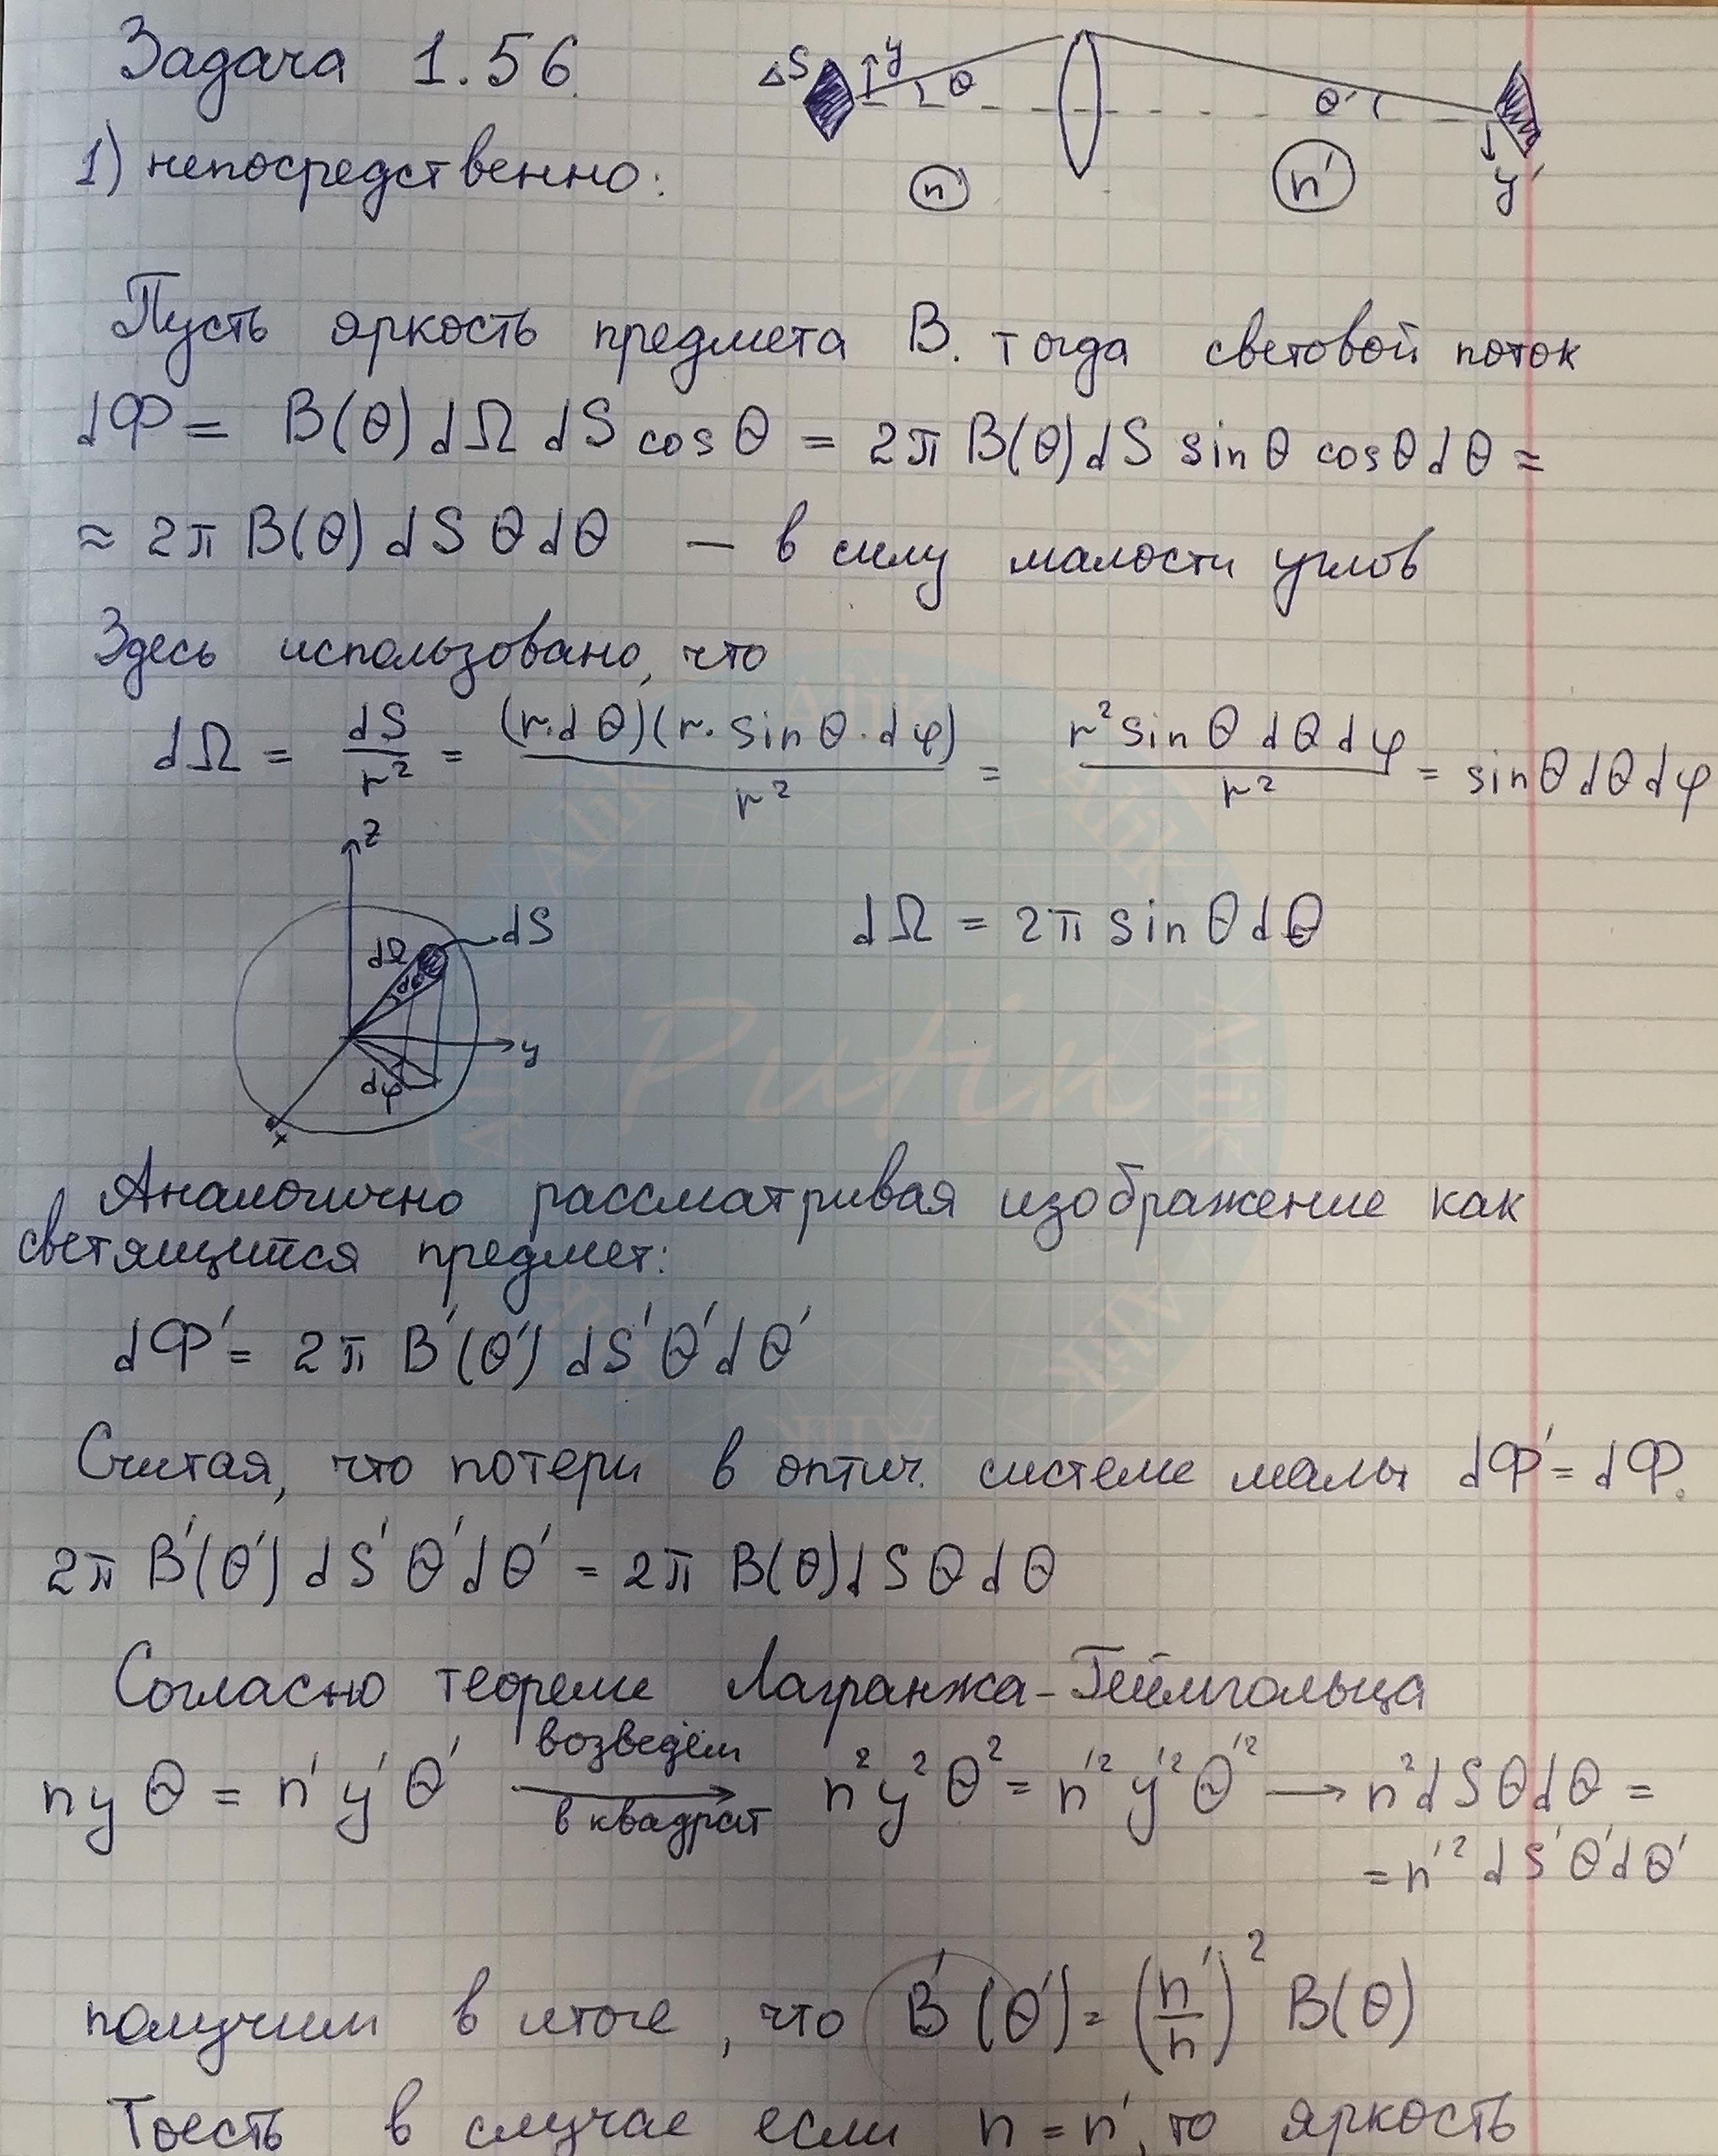 Задача 1.56.
ΔS y θ θ' y'
n n'
1) непосредственно:
Пусть яркость предмета B. тогда световой поток
dΦ = B(θ) dΩ dS cosθ = 2π B(θ) dS sinθ cosθ dθ ≈
≈ 2π B(θ) dS θ dθ — в силу малости углов
Здесь использовано, что
dΩ = dS/r² = (r·dθ)(r·sinθ·dφ)/r² = r² sinθ dθ dφ/r² = sinθ dθ dφ
z
dΩ dθ dS
dΩ = 2π sinθ dθ
y
dφ
x
Аналогично рассматривая изображение как
светящийся предмет:
dΦ' = 2π B'(θ') dS' θ' dθ'
Считая, что потери в оптич. системе малы dΦ' = dΦ.
2π B'(θ') dS' θ' dθ' = 2π B(θ) dS θ dθ
Согласно теореме Лагранжа-Геймгольца
n y θ = n' y' θ' возведём в квадрат → n² y² θ² = n'² y'² θ'² → n² dS θ dθ =
= n'² dS' θ' dθ'
получим в итоге, что B'(θ') = (n'/n)² B(θ)
Тоесть в случае если n = n', то яркость
Alik Alik Alik Alik Alik Alik
Putin